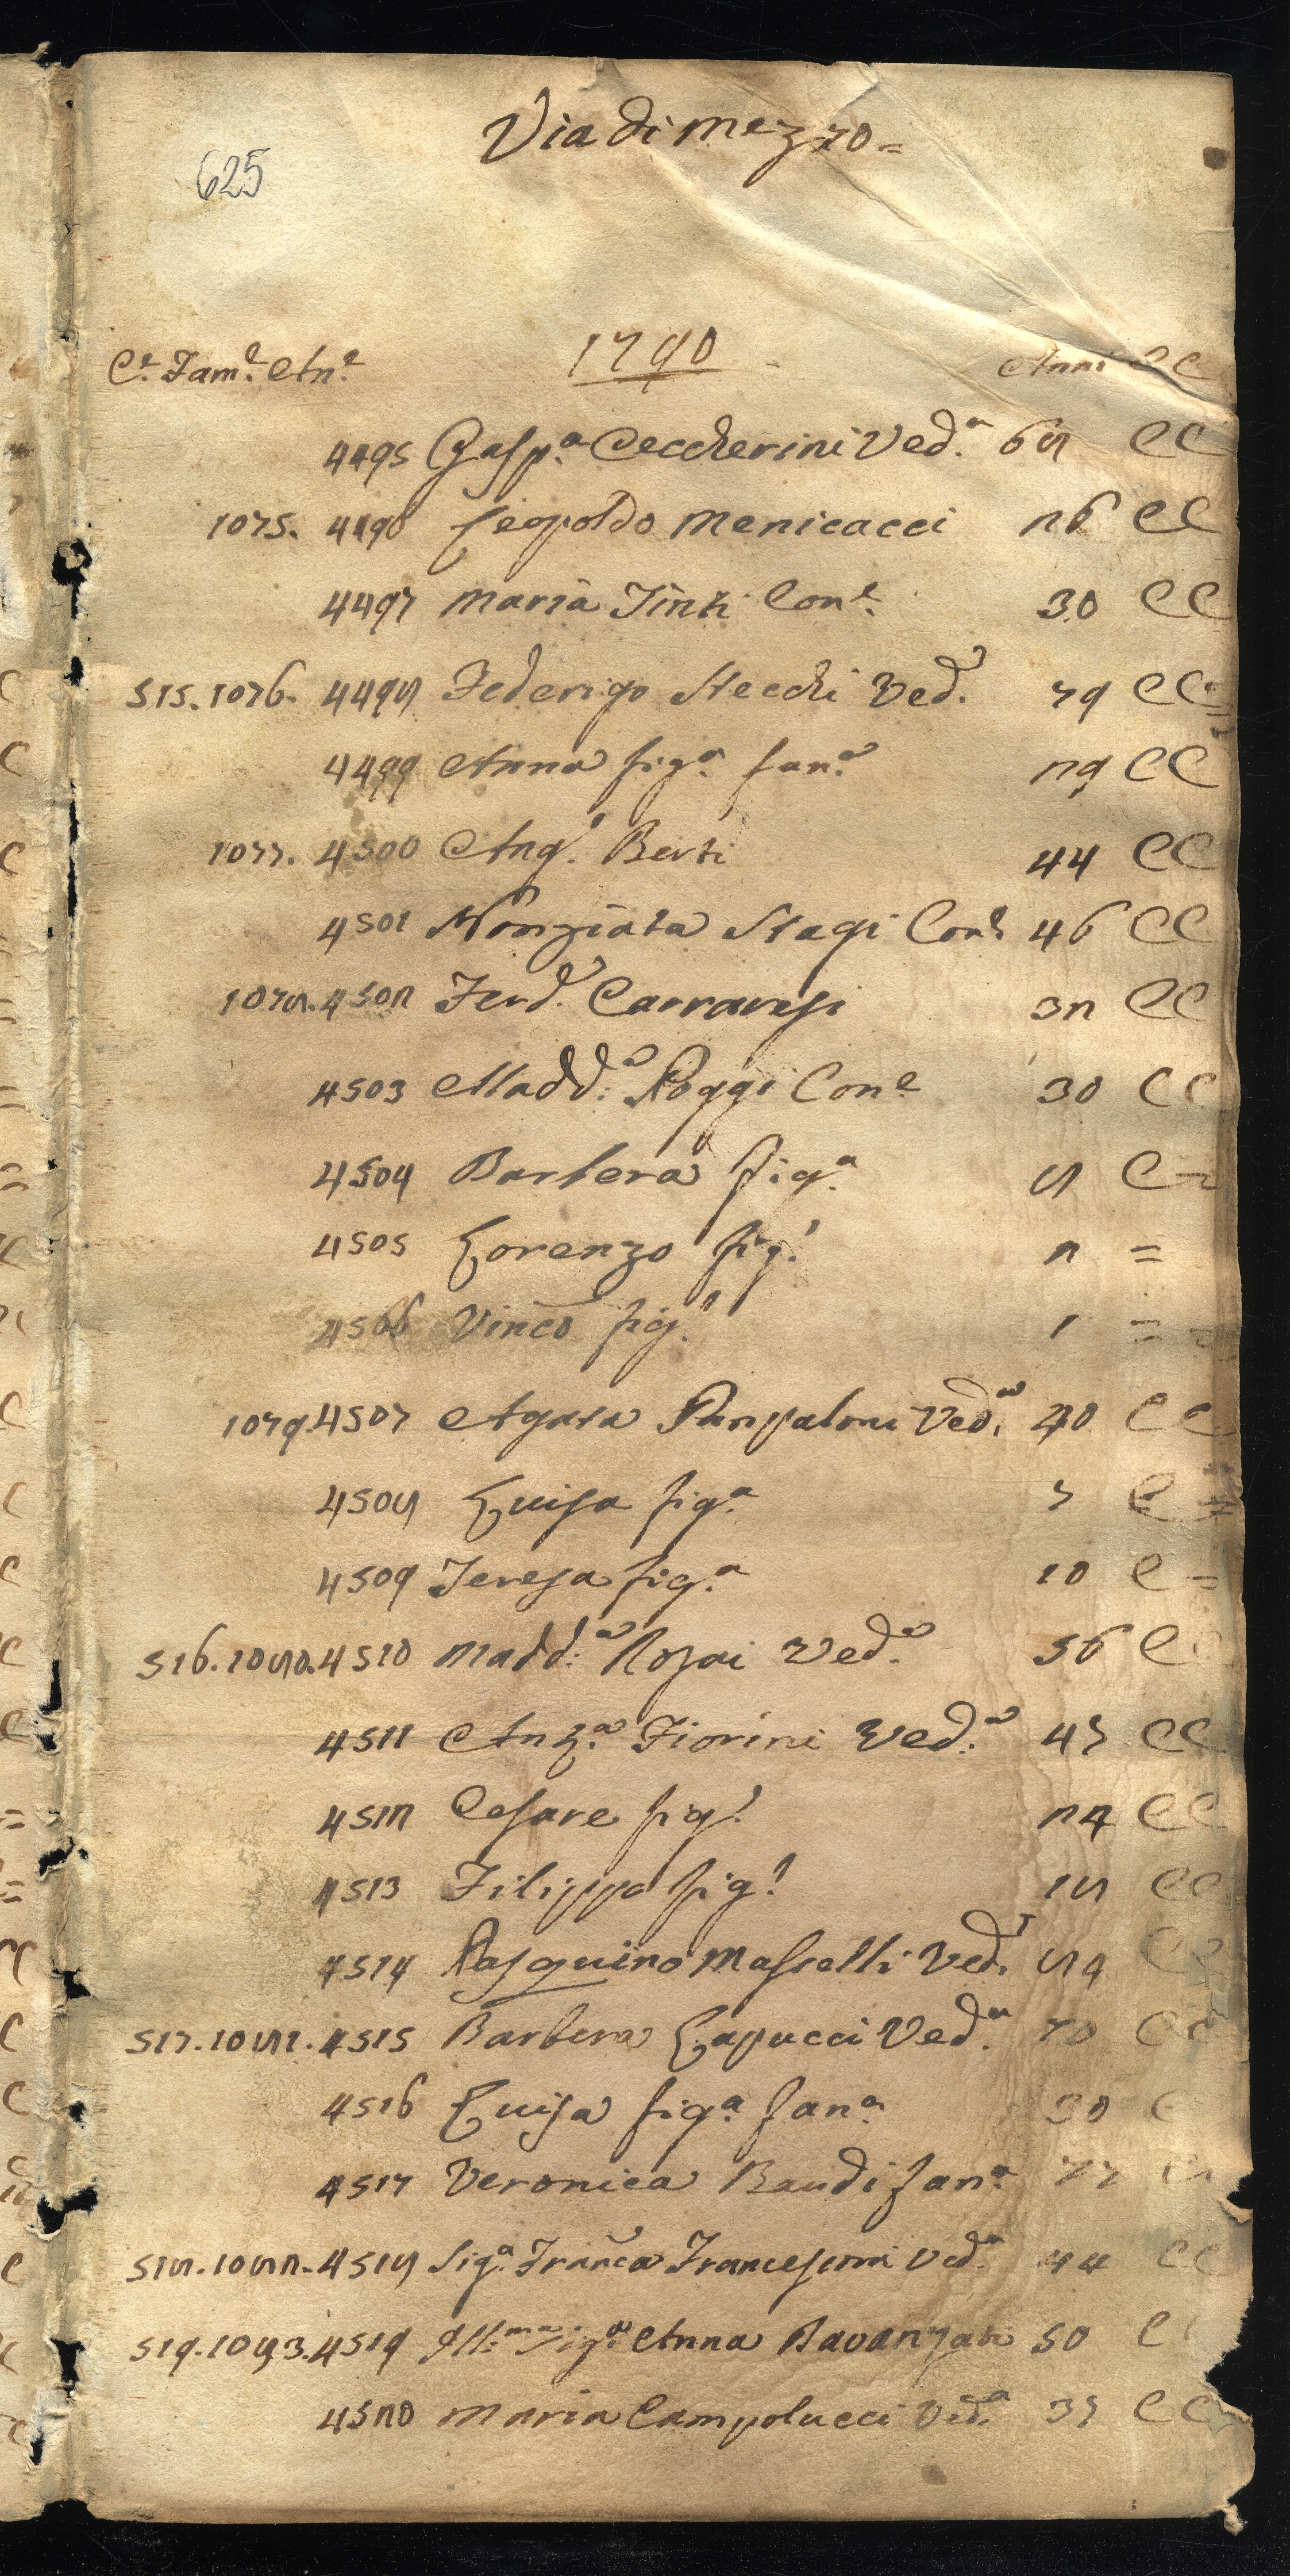 Via di mezzo =
625
C.e Fam.e An.e 1790 Anni C C
4495 Gasp.a Ceccherini Ved.a 68 C C
1075. 4496 Leopoldo Menicacci 26 C C
4497 Maria Tinti Con.e 30 C C
515. 1076. 4498 Federigo Stecchi Ved. 79 C C
4499 Anna fig.a fan.a 29 C C
1077. 4500 Ang.l Berti 44 C C
4501 Nonziata Stagi Con.e 46 C C
1078. 4502 Ferd.o Carravesi 32 C C
4503 Madd:a Poggi Con.e 30 C C
4504 Barbera fig.a 8 C =
4505 Lorenzo fig.l 2 =
4506 Vinco fig.l 1 = =
1079. 4507 Agata Panpaloni Ved.a 40 C C
4508 Luisa fig.a 7 C =
4509 Teresa fig.a 10 C =
516. 1080. 4510 Madd:a Rosai Ved.a 56 C C
4511 Anz.a Fiorini Ved.a 47 C C
4512 Cesare fig.l 24 C C
4513 Filippo fig.l 18 C C
4514 Pasquino Masselli Ved. 84 C C
517. 1081. 4515 Barbera Capucci Ved.a 70 C C
4516 Luisa fig.a fan.a 30 C
4517 Veronica Baudi fan.a 77 C C
518. 1082. 4518 Sig.a Franca Francesconi Ved.a 44 C C
519. 1083. 4519 Ill.ma Sig.a Anna Bavanzati 50 C
4520 Maria Campolucci Ved.a 37 C C